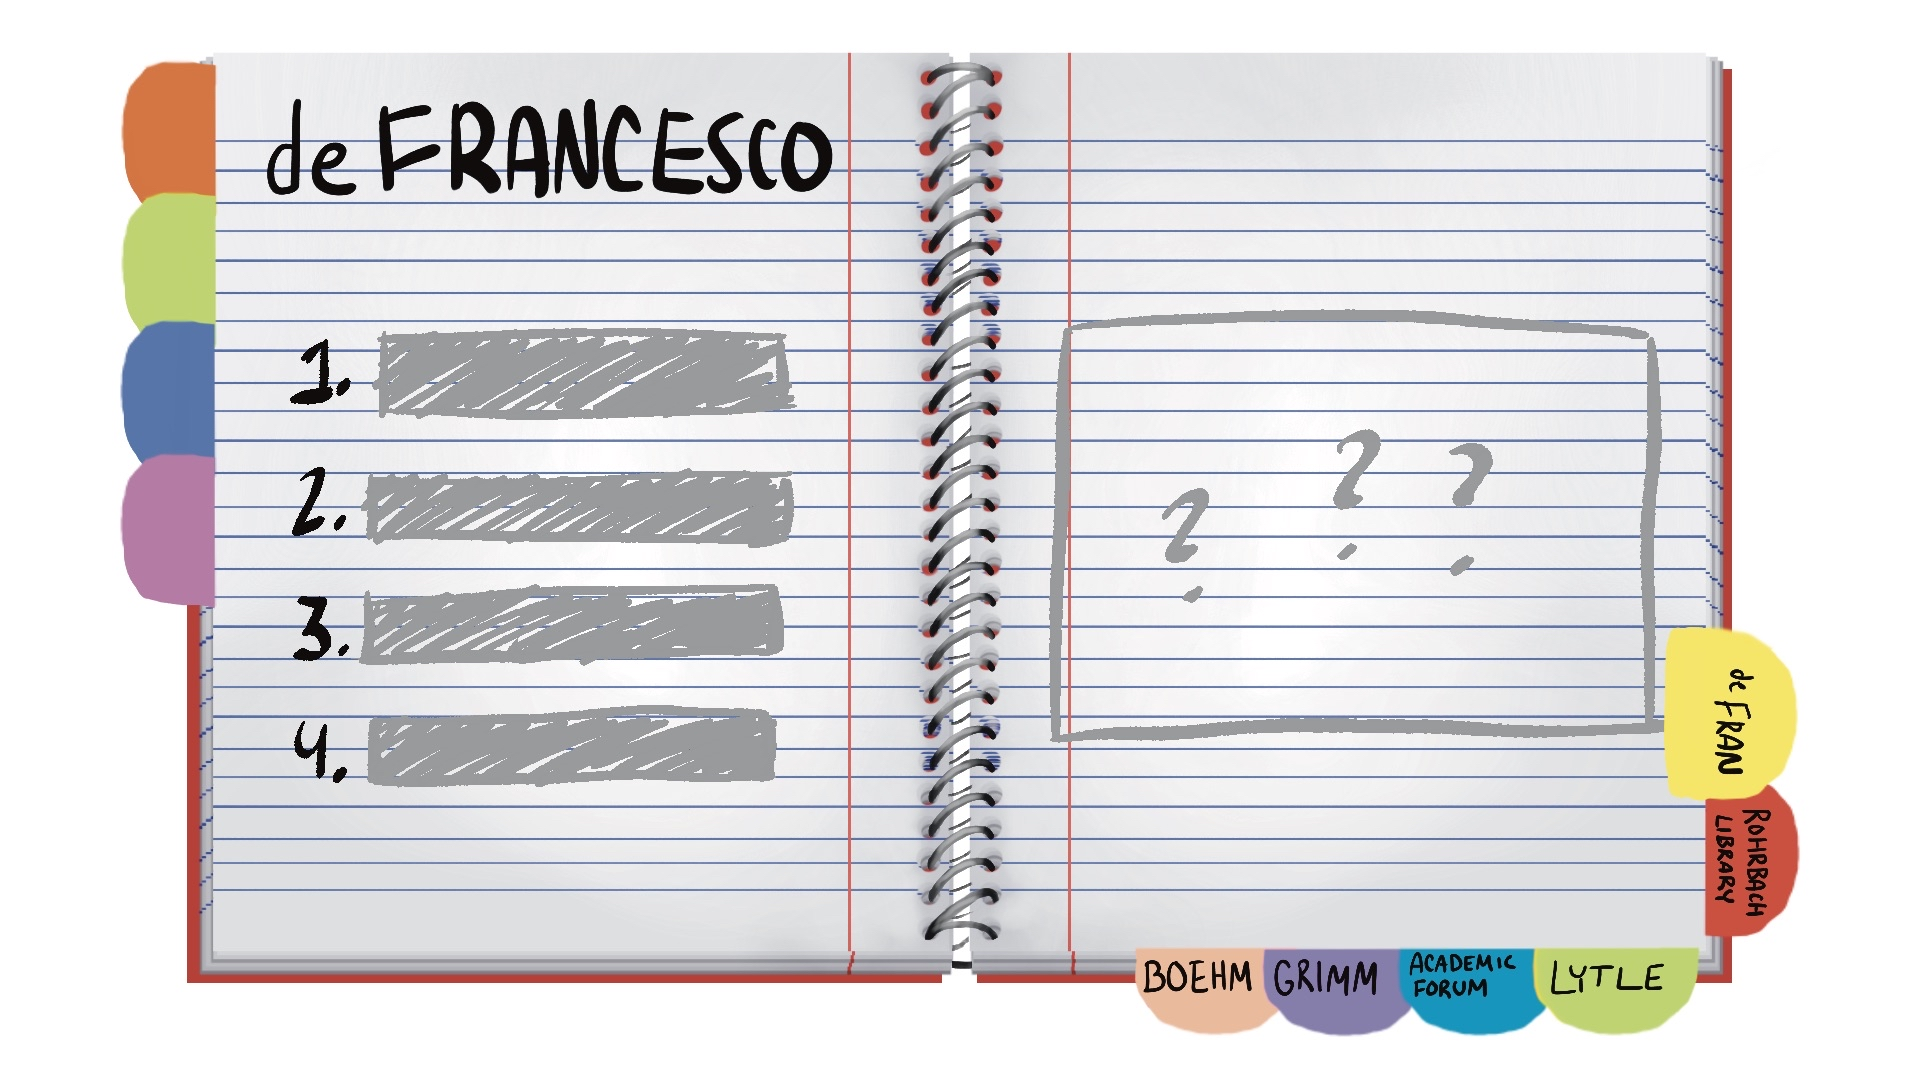 de FRANCESCO
1.
2.
3.
4.
? ? ?
de FRAN
ROHRBACH
LIBRARY
BOEHM
GRIMM
ACADEMIC
FORUM
LYTLE